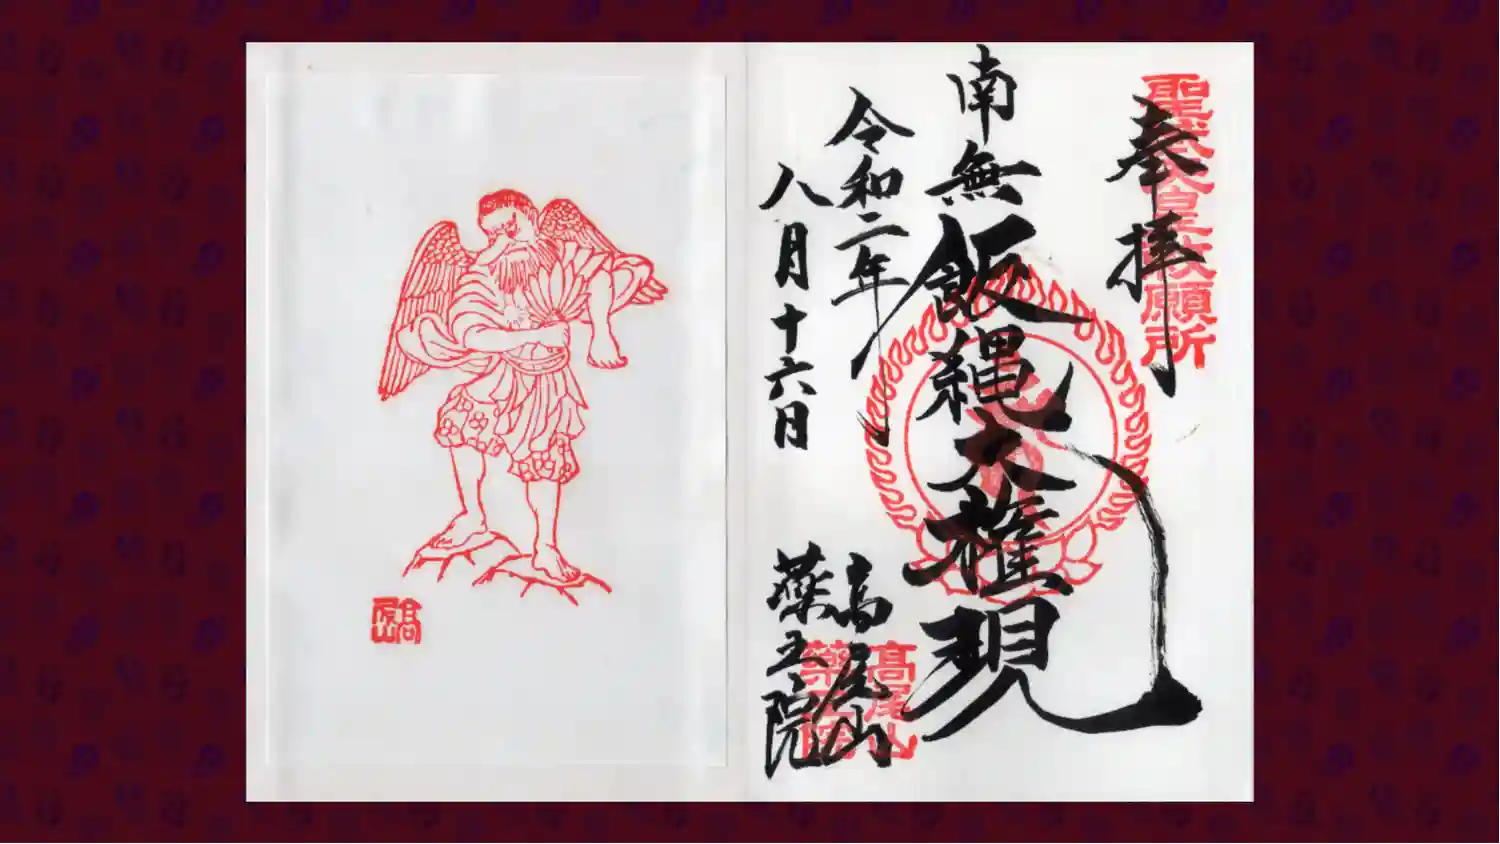 奉拝
聖武天皇勅願所
南無飯縄大権現
令和二年
八月十六日
高尾山
薬王院
高尾山
薬王院
高尾山